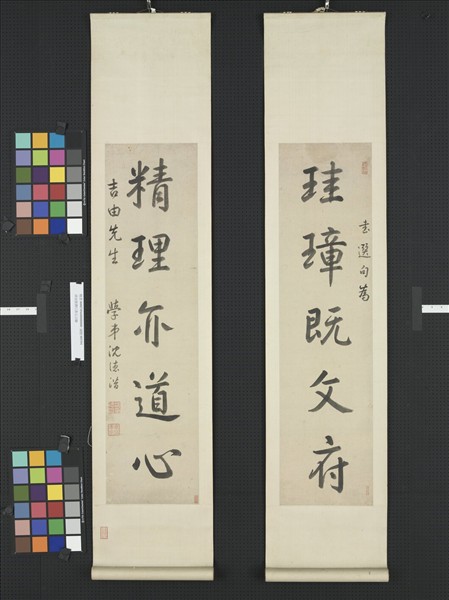 珪璋既文府
書選句為
精理亦道心
吉由先生
學弟沈德潛